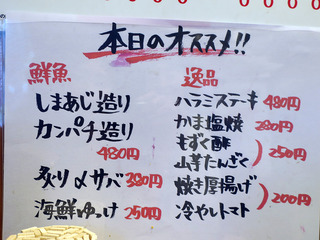 本日のオススメ!!
鮮魚
しまあじ造り
カンパチ造り
480円
炙り〆サバ 380円
海鮮ゆっけ 250円
逸品
ハラミステーキ 480円
かま塩焼 280円
もずく酢
山芋たんざく
250円
焼き厚揚げ
冷やしトマト
200円